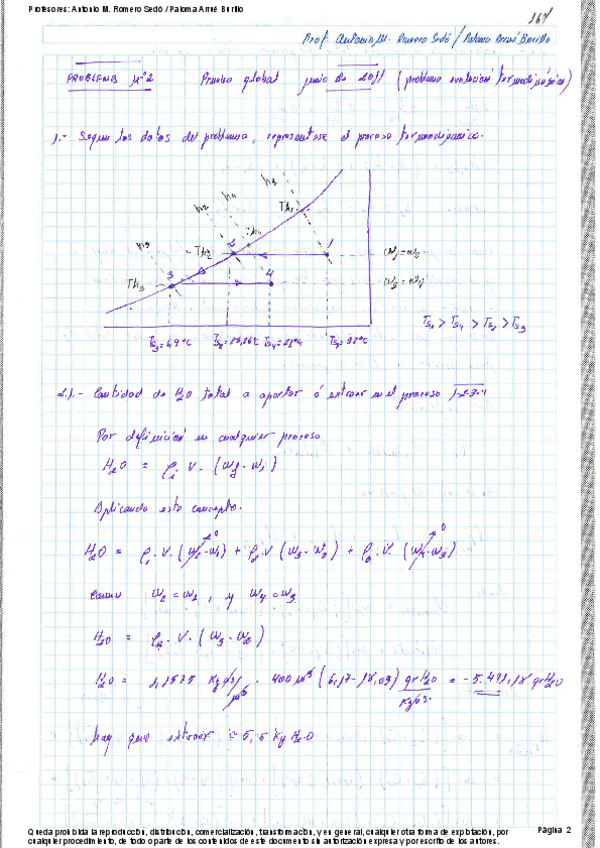 Profesores: Antonio M. Romero Sedó / Paloma Arrué Burillo
Prof. Antonio M. Romero Sedó / Paloma Arrué Burillo
PROBLEMA Nº 2 Prueba global junio de 2011 (problema evolución termodinámica)
1.- Según los datos del problema, represéntese el proceso termodinámico.
h1
h4
h2
h3
Th1
Th4
Th2
Th3
1
2
3
4
ω1=ω2
ω3=ω4
Ts1 > Ts4 > Ts2 > Ts3
2.).- Cantidad de H2O total a aportar ó extraer en el proceso 1-2-3-4
Por definición en cualquier proceso
H2O = ρi · V · (ωj - ωi)
Aplicando este concepto.
H2O = ρ1 · V · (ω2-ω1) + ρ2 · V (ω3-ω2) + ρ3 · V · (ω4-ω3)
Como ω2=ω1, y ω4=ω3
H2O = ρ2 · V · (ω3-ω2)
H2O = 400 m3 gr H2O
hay que extraer ≈ 5,5 Kg H2O
Queda prohibida la reproducción, distribución, comercialización, transformación, y en general, cualquier otra forma de explotación, por
cualquier procedimiento, de todo o parte de los contenidos de este documento sin autorización expresa y por escrito de los autores.
Página 2